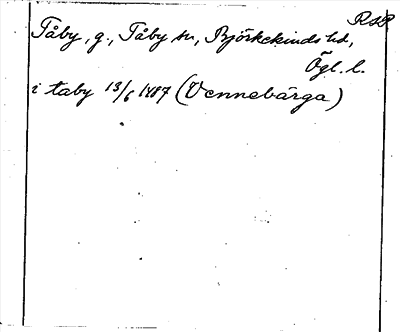 RAP
Tåby, g., Tåby sn, Björkekinds hd,
Ögl. l.
i taby 13/6 1487 (Vennebärga)